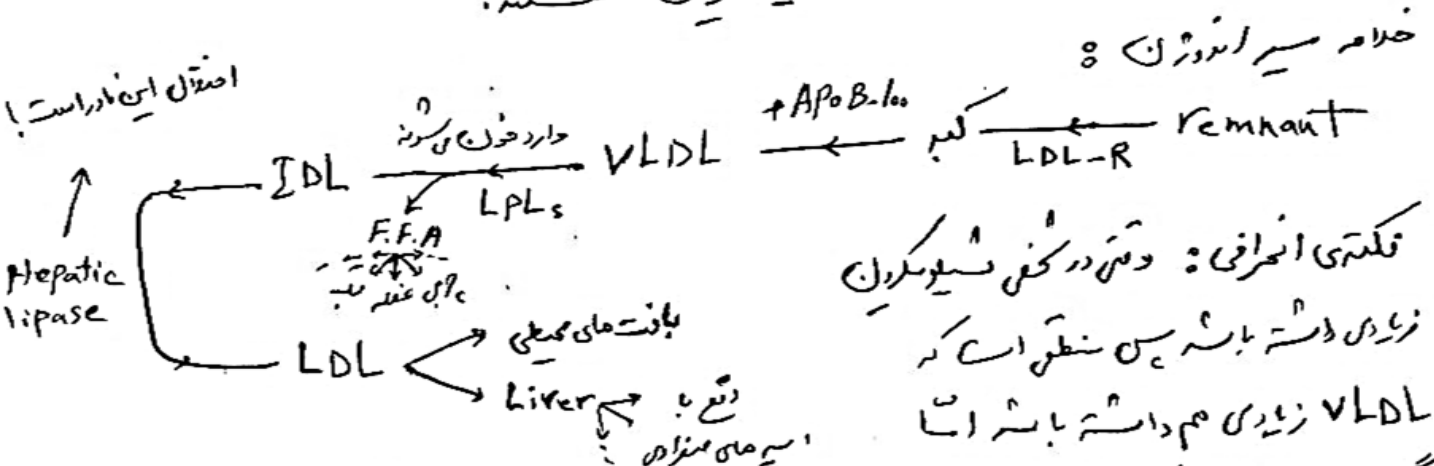 خلاصه مسیر اندوژن :
remnant
LDL-R
کبد
+ APoB-100
VLDL
وارد خون می‌شوند
LPLs
F.F.A
چربی عضله قلب
IDL
اختلال این نادر است !
Hepatic
lipase
LDL
بافت های محیطی
Liver
دفع با
اسید های صفراوی
نکته‌ی انحرافی : وقتی در شخصی شیلومیکرون
زیادی داشته باشد پس منطقی است که
VLDL زیادی هم داشته باشد امّا